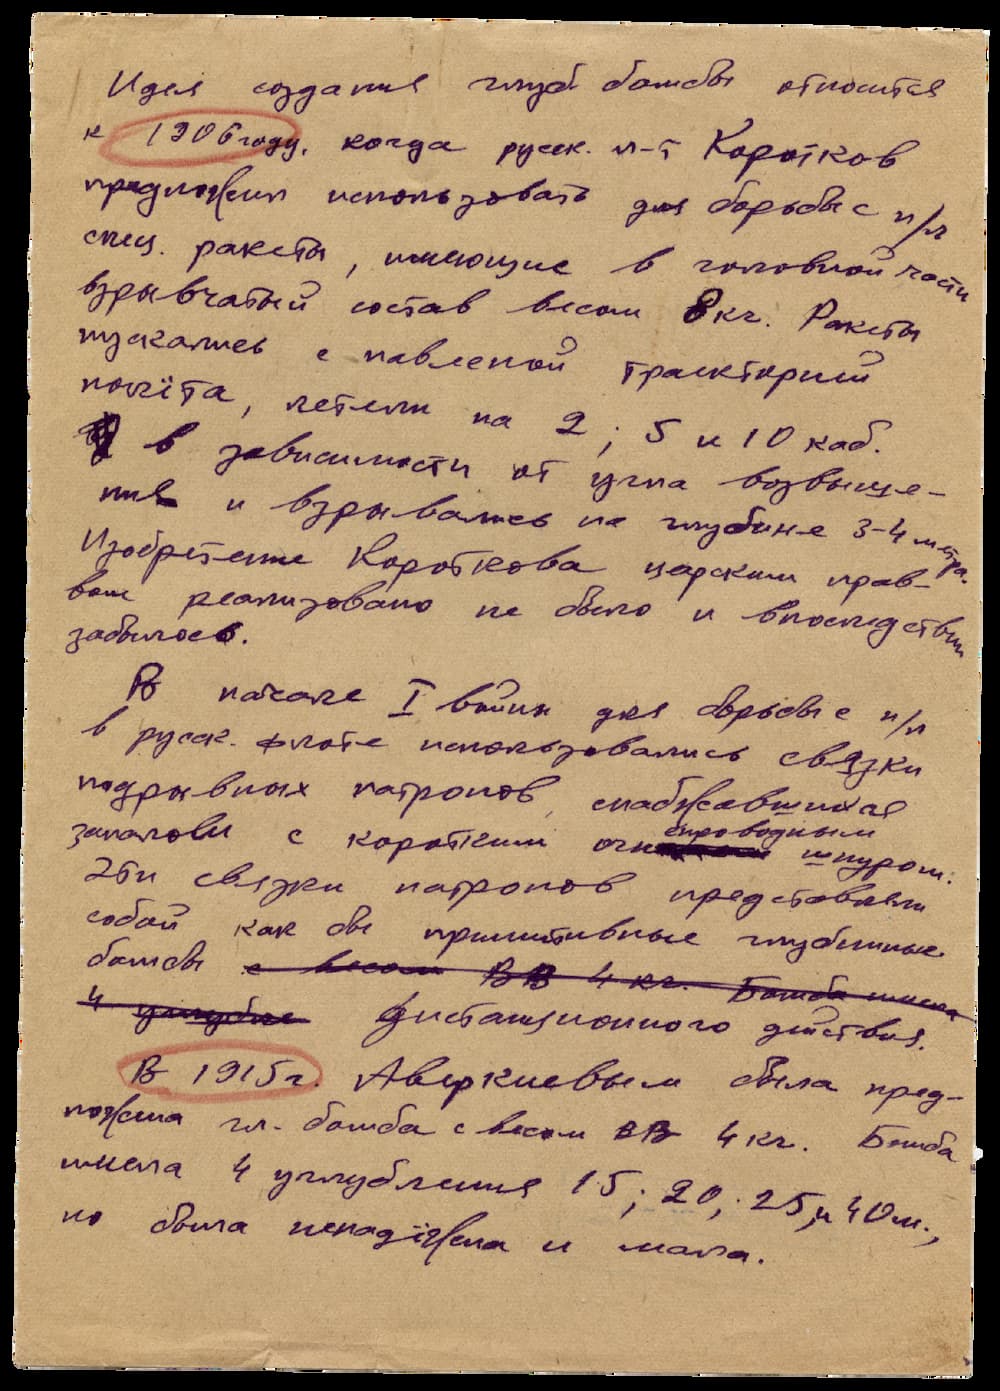 Идея создания глуб. бомбы относится
к 1906 году, когда русск. л-т Коротков
предложил использовать для борьбы с п/л
спец. ракеты, имеющие в головной части
взрывчатый состав весом 8 кг. Ракеты
пускались с навесной траекторией
полёта, летели на 2; 5 и 10 каб.
в зависимости от угла возвыше-
ния и взрывались на глубине 3-4 метра.
Изобретение Короткова царским прав-
вом реализовано не было и впоследствии
забылось.
В начале I войны для борьбы с п/л
в русск. флоте использовались связки
подрывных патронов, снабжавшихся
запалом с коротким огнепроводным шнуром.
Эти связки патронов представляли
собой как бы примитивные глубинные
бомбы с весом ВВ 4 кг. Бомба имела
4 углубле дистанционного действия.
В 1915 г. Аверкиевым была пред-
ложена гл. бомба с весом ВВ 4 кг. Бомба
имела 4 углубления 15; 20; 25, и 40 м.,
но была ненадёжна и мала.